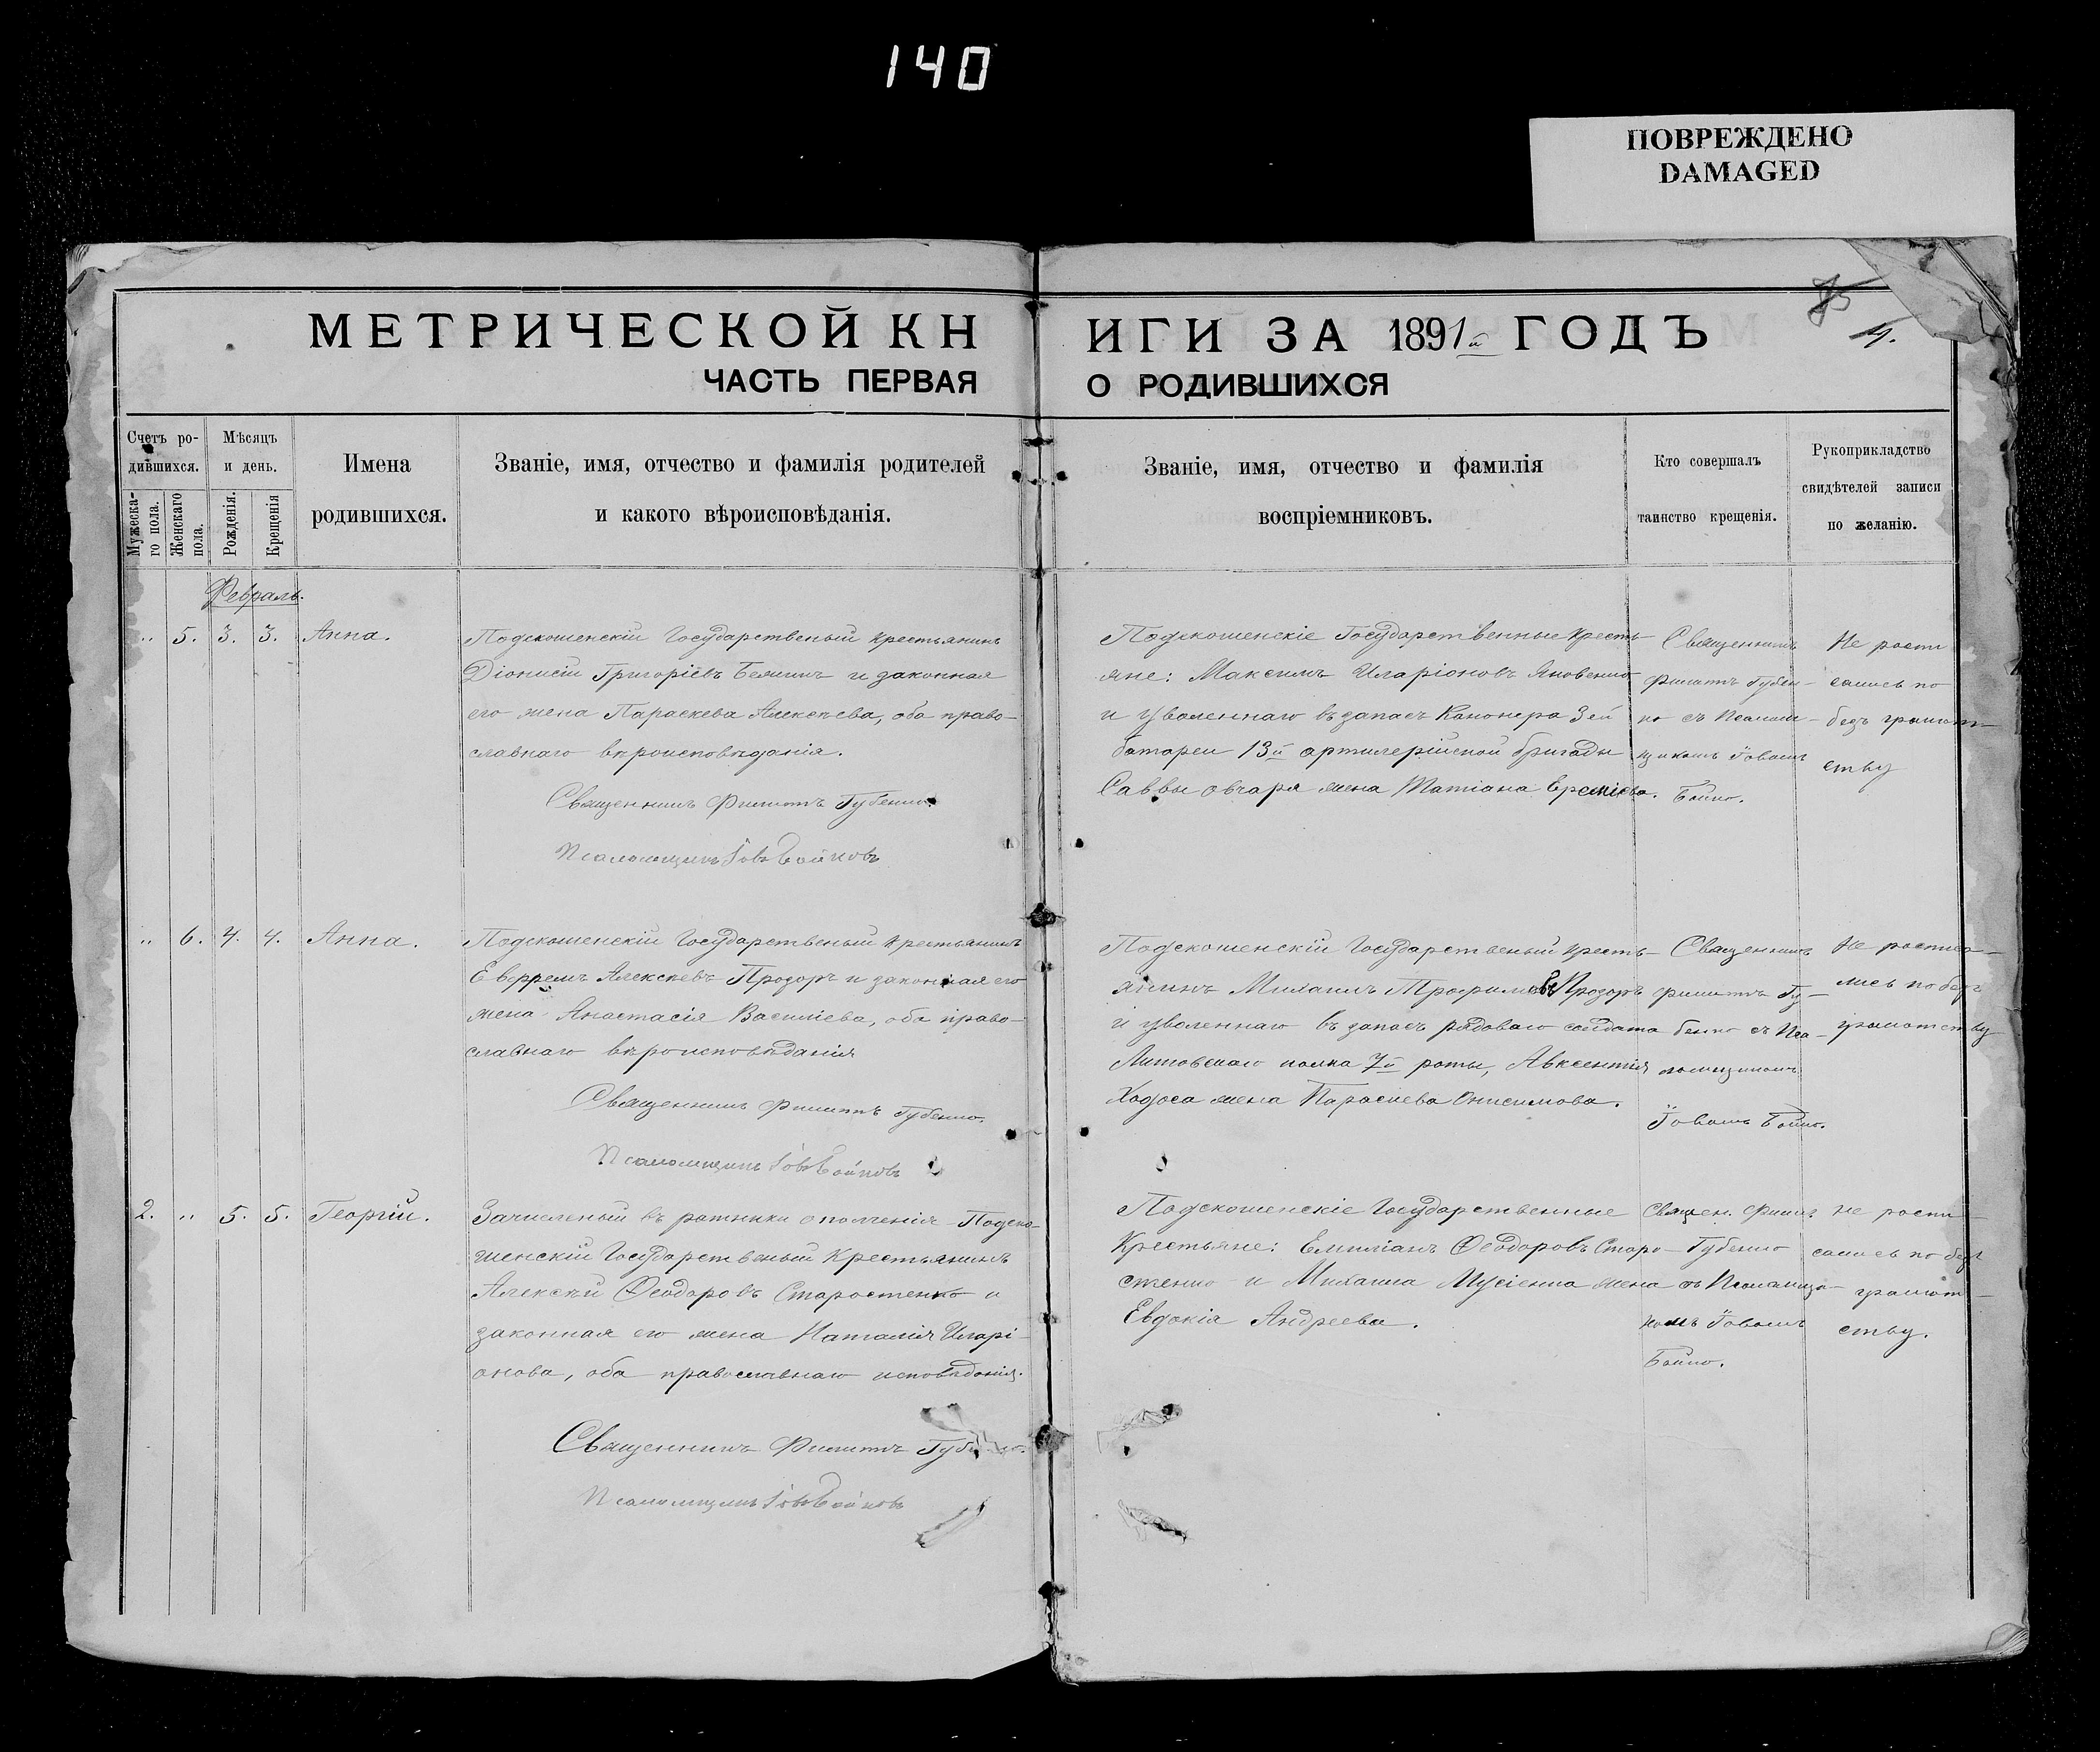 140
ПОВРЕЖДЕНО
DAMAGED
4.
МЕТРИЧЕСКОЙ КН
ИГИ ЗА 1891й ГОДЪ
ЧАСТЬ ПЕРВАЯ
О РОДИВШИХСЯ
Счетъ ро-
дившихся.
Мужеска-
го пола.
Женскаго
пола.
Мѣсяцъ
и день.
Рожденія.
Крещенія
Имена
родившихся.
Званіе, имя, отчество и фамилія родителей
и какого вѣроисповѣданія.
Званіе, имя, отчество и фамилія
воспріемниковъ.
Кто совершалъ
таинство крещенія.
Рукоприкладство
свидѣтелей записи
по желанію.
Февраль.
„ 5. 3. 3. Анна.
Подскошенскій Государственый крестьянинъ
Діонисій Григоріевъ и законная
его жена Параскева Алексѣева, оба право-
славнаго вѣроисповѣданія.
Священникъ Филиппъ Губенко.
Псаломщикъ Іовъ Бойковъ
Подскошенскіе Государственные кресть-
яне: Максимъ Иларіоновъ Яковенко
и уволеннаго въ запасъ Канонера 3ей
батареи 13й артилерійской бригады
Саввы Овчаря жена Татіана Ереміева.
Священникъ
Филиппъ Губен-
ко съ Псалом-
щикомъ Іовомъ
Бойко.
Не роспи
сались по
безъ грамот-
ству
„ 6. 4. 4. Анна.
Подскошенскій Государственый крестьянинъ
Евфремъ Алексѣевъ Прозоръ и законная его
жена Анастасія Василіева, оба право-
славнаго вѣроисповѣданія
Священникъ Филиппъ Губенко.
Псаломщикъ Іовъ Бойковъ
Подскошенскій Государственый кресть-
янинъ Михаилъ Трофимовъ Прозоръ
и уволеннаго въ запасъ рядоваго солдата
Литовскаго полка 7й роты, Авксентія
Ходоса жена Параскева Онисимова.
Священникъ
Филиппъ Гу-
бенко съ Пса-
ломщикомъ
Іовомъ Бойко.
Не росписа-
лись по безъ
грамотству
2. „ 5. 5. Георгій.
Зачисленый въ ратники ополченія Подско-
шенскій Государственый Крестьянинъ
Алексѣй Ѳеодоровъ Старостенко и
законная его жена Наталія Иларі-
онова, оба православнаго исповѣданія.
Священникъ Филиппъ Губенко.
Псаломщикъ Іовъ Бойковъ
Подскошенскіе Государственные
Крестьяне: Емиліанъ Ѳеодоровъ Старо-
стенко и Михаила Мусіенка жена
Евдокія Андреева.
Священ. Филип.
Губенко
съ Псаломщи-
комъ Іовомъ
Бойко.
Не роспи-
сались по безъ
грамот-
ству.